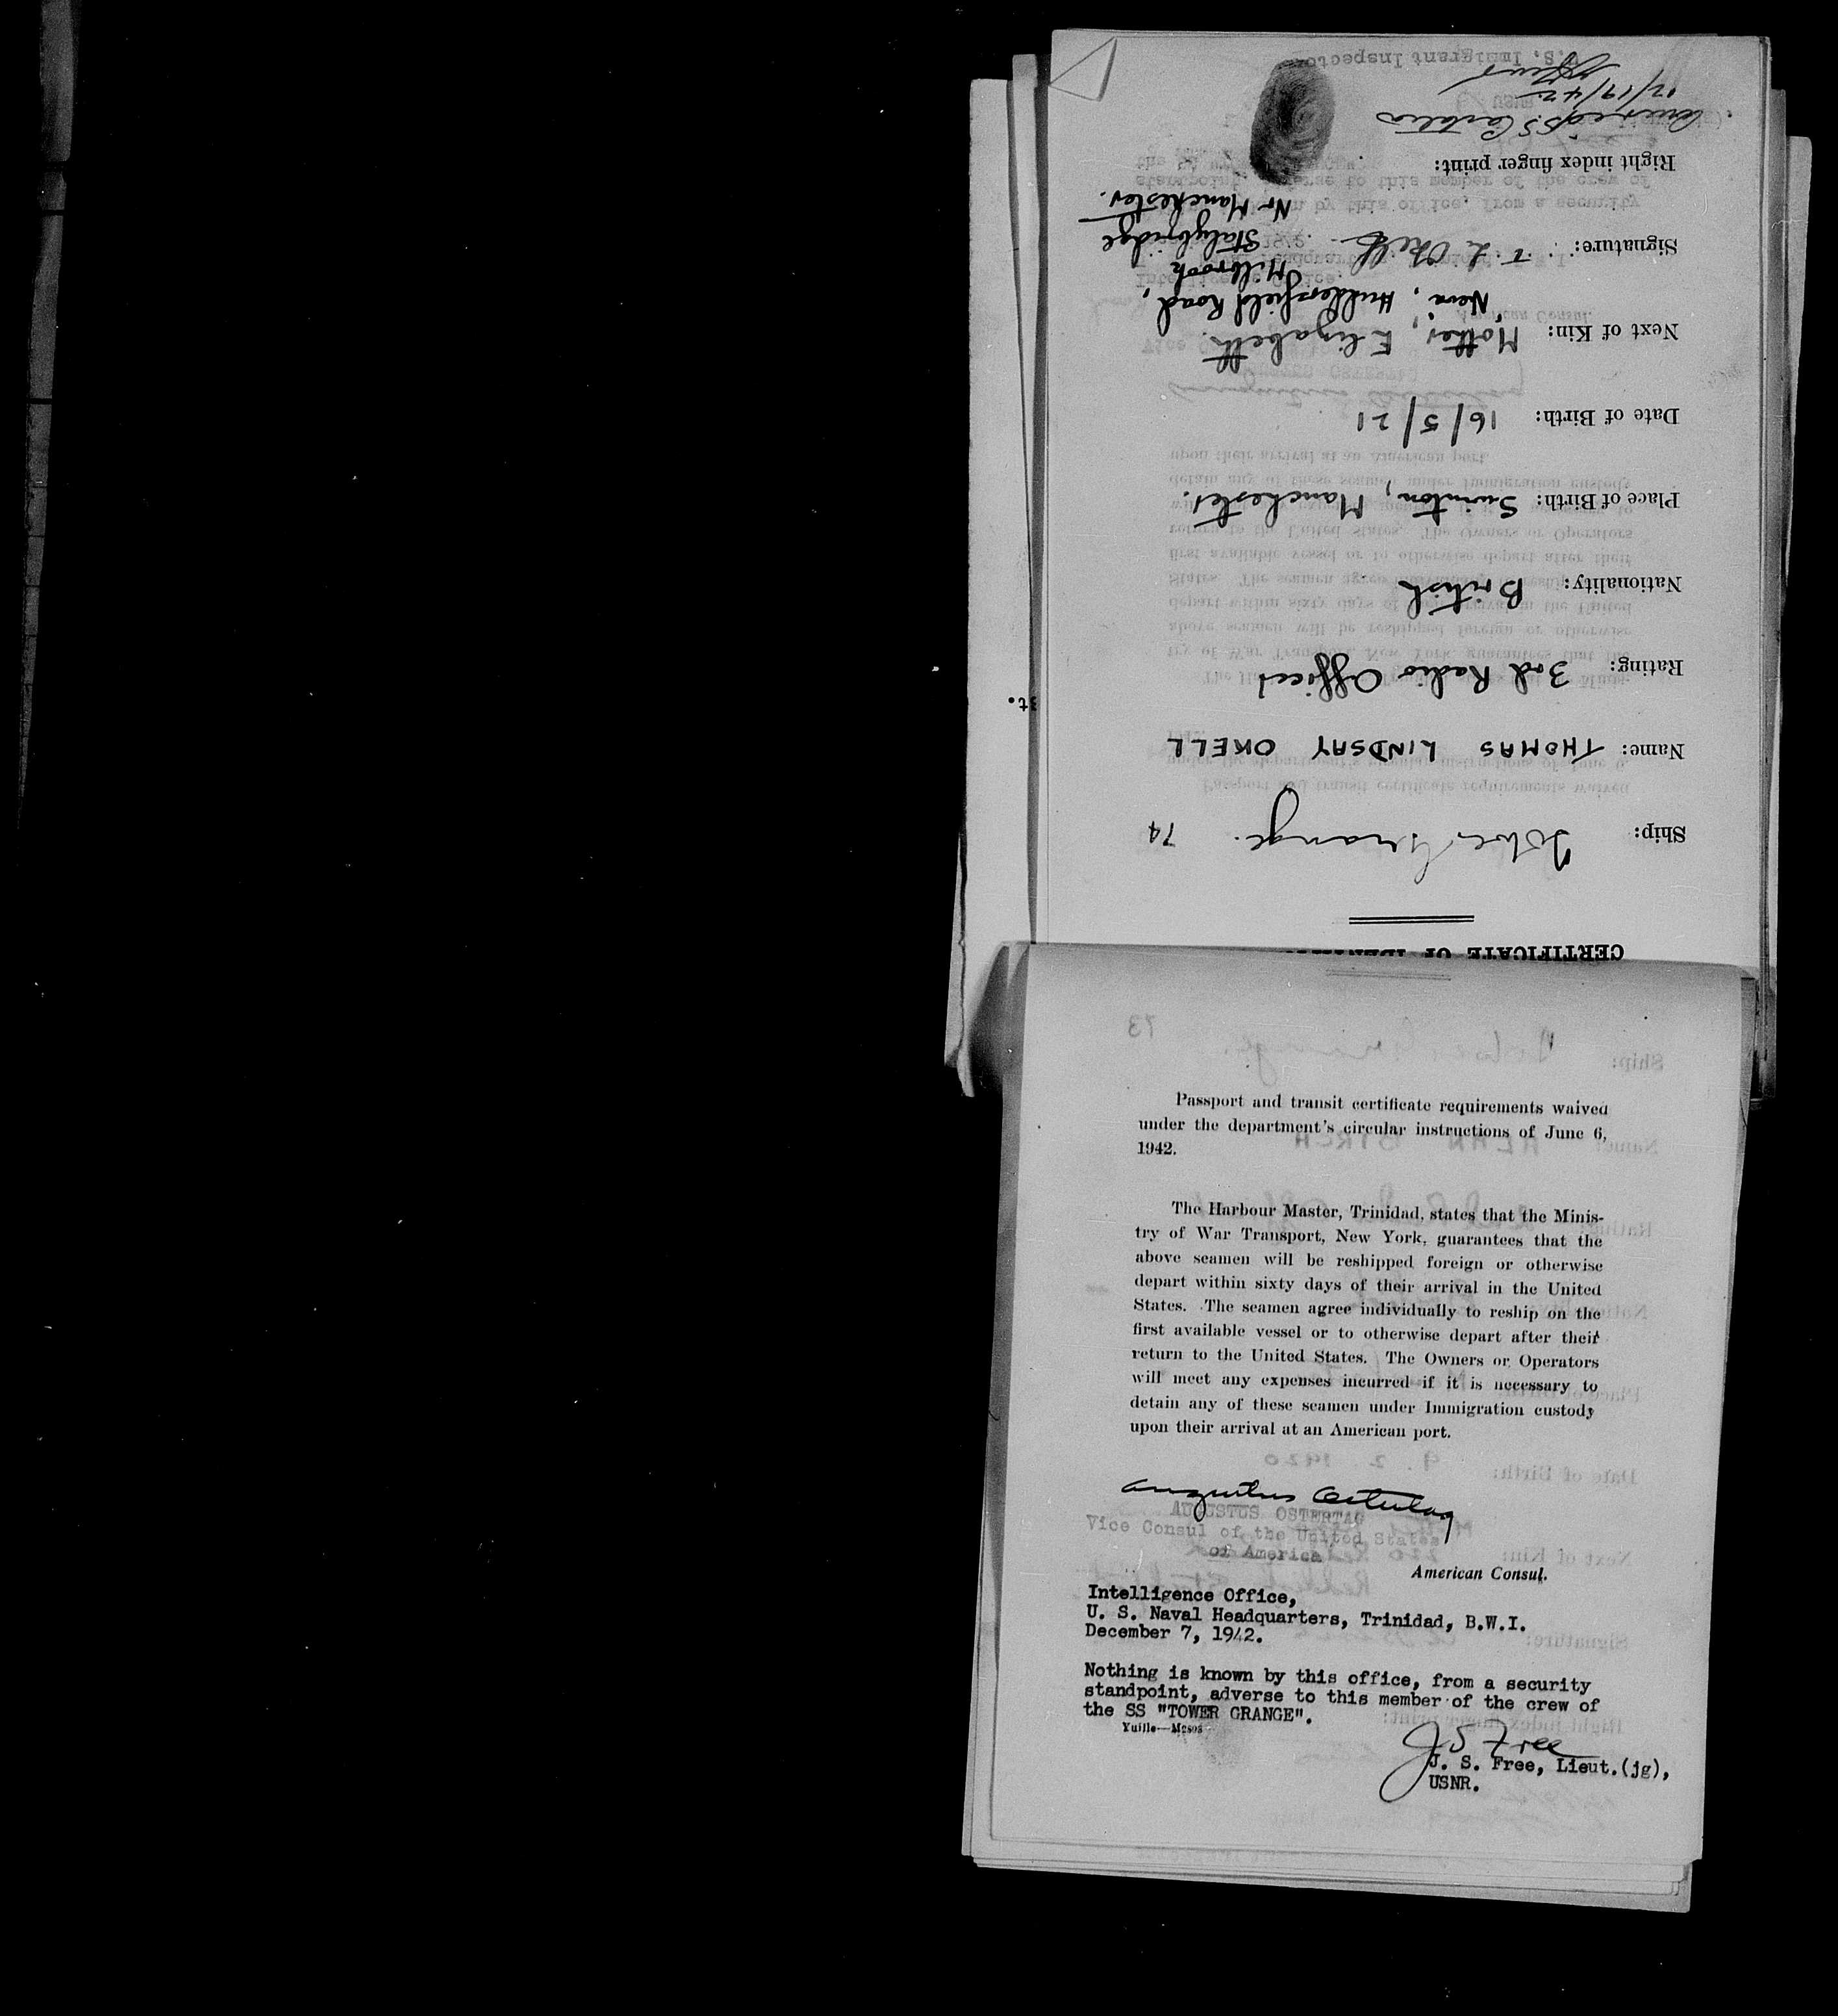 CERTIFICATE OF
Ship: Tower Grange. 74
Name: THOMAS LINDSAY OKELL
Rating: 3rd Radio Officer
Nationality: British
Place of Birth: Swinton, Manchester.
Date of Birth: 16/5/21
Next of Kin: Mother, Elizabeth.
Huddersfield Road,
Milbrook
Signature: T. L. Okell Stalybridge
Nr Manchester.
Right index finger print:
12/19/42
U.S. Immigrant Inspector
st.
Passport and transit certificate requirements waived
under the department's circular instructions of June 6,
1942.
The Harbour Master, Trinidad, states that the Minis-
try of War Transport, New York, guarantees that the
above seamen will be reshipped foreign or otherwise
depart within sixty days of their arrival in the United
States. The seamen agree individually to reship on the
first available vessel or to otherwise depart after their
return to the United States. The Owners or Operators
will meet any expenses incurred if it is necessary to
detain any of these seamen under Immigration custody
upon their arrival at an American port.
Augustus Ostertag
AUGUSTUS OSTERTAG
Vice Consul of the United States
of America
American Consul.
Intelligence Office,
U. S. Naval Headquarters, Trinidad, B.W.I.
December 7, 1942.
Nothing is known by this office, from a security
standpoint, adverse to this member of the crew of
the SS "TOWER GRANGE".
J S Free
J. S. Free, Lieut.(jg),
USNR.